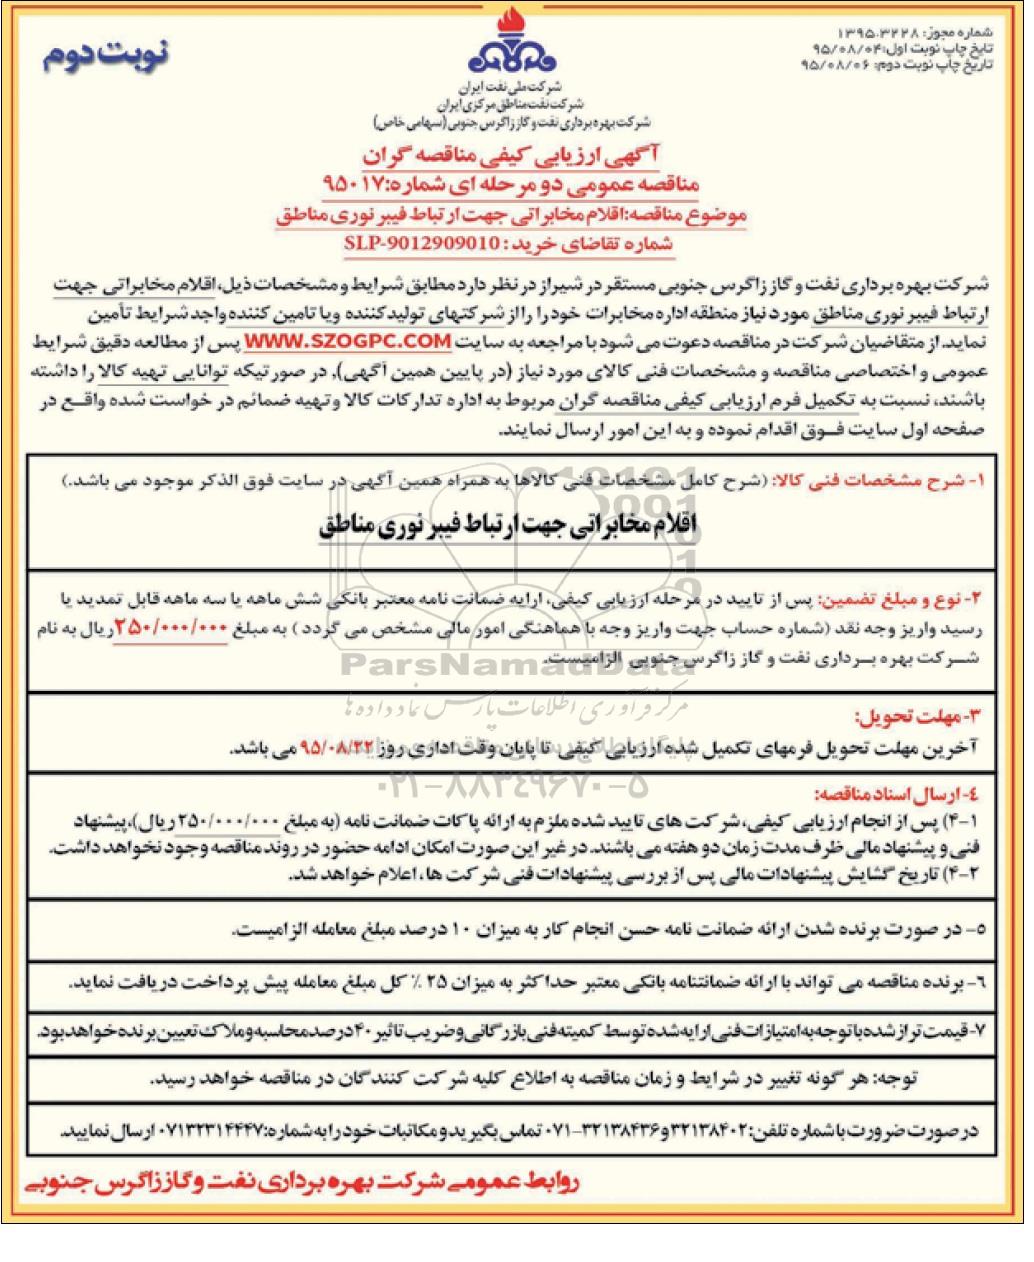 شماره مجوز: ۱۳۹۵.۳۲۲۸
تایخ چاپ نوبت اول:۹۵/۰۸/۰۴
تاریخ چاپ نوبت دوم: ۹۵/۰۸/۰۶
نوبت دوم
شرکت ملی نفت ایران
شرکت نفت مناطق مرکزی ایران
شرکت بهره برداری نفت و گاز زاگرس جنوبی (سهامی خاص)
آگهی ارزیابی کیفی مناقصه گران
مناقصه عمومی دو مرحله ای شماره:۹۵۰۱۷
موضوع مناقصه:اقلام مخابراتی جهت ارتباط فیبر نوری مناطق
شماره تقاضای خرید : SLP-9012909010
شرکت بهره برداری نفت و گاز زاگرس جنوبی مستقر در شیراز در نظر دارد مطابق شرایط و مشخصات ذیل،اقلام مخابراتی جهت
ارتباط فیبر نوری مناطق مورد نیاز منطقه اداره مخابرات خود را را از شرکتهای تولیدکننده ویا تامین کننده واجد شرایط تأمین
نماید. از متقاضیان شرکت در مناقصه دعوت می شود با مراجعه به سایت WWW.SZOGPC.COM پس از مطالعه دقیق شرایط
عمومی و اختصاصی مناقصه و مشخصات فنی کالای مورد نیاز (در پایین همین آگهی)، در صورتیکه توانایی تهیه کالا را داشته
باشند، نسبت به تکمیل فرم ارزیابی کیفی مناقصه گران مربوط به اداره تدارکات کالا وتهیه ضمائم در خواست شده واقع در
صفحه اول سایت فوق اقدام نموده و به این امور ارسال نمایند.
۱- شرح مشخصات فنی کالا: (شرح کامل مشخصات فنی کالاها به همراه همین آگهی در سایت فوق الذکر موجود می باشد.)
اقلام مخابراتی جهت ارتباط فیبر نوری مناطق
۲- نوع و مبلغ تضمین: پس از تایید در مرحله ارزیابی کیفی، ارایه ضمانت نامه معتبر بانکی شش ماهه یا سه ماهه قابل تمدید یا
رسید واریز وجه نقد (شماره حساب جهت واریز وجه با هماهنگی امور مالی مشخص می گردد ) به مبلغ ۲۵۰/۰۰۰/۰۰۰ریال به نام
شرکت بهره برداری نفت و گاز زاگرس جنوبی الزامیست.
ParsNamadData
مرکز فرآوری اطلاعات پارس نماد داده ها
۳- مهلت تحویل:
آخرین مهلت تحویل فرمهای تکمیل شده ارزیابی کیفی تا پایان وقت اداری روز ۹۵/۰۸/۲۲ می باشد.
۰۲۱-۸۸۳۴۹۶۷۰-۵
۴- ارسال اسناد مناقصه:
۴-۱) پس از انجام ارزیابی کیفی، شرکت های تایید شده ملزم به ارائه پاکات ضمانت نامه (به مبلغ ۲۵۰/۰۰۰/۰۰۰ریال)،پیشنهاد
فنی و پیشنهاد مالی ظرف مدت زمان دو هفته می باشند. در غیر این صورت امکان ادامه حضور در روند مناقصه وجود نخواهد داشت.
۴-۲) تاریخ گشایش پیشنهادات مالی پس از بررسی پیشنهادات فنی شرکت ها ، اعلام خواهد شد.
۵- در صورت برنده شدن ارائه ضمانت نامه حسن انجام کار به میزان ۱۰ درصد مبلغ معامله الزامیست.
۶- برنده مناقصه می تواند با ارائه ضمانتنامه بانکی معتبر حداکثر به میزان ۲۵ ٪ کل مبلغ معامله پیش پرداخت دریافت نماید.
۷- قیمت تراز شده با توجه به امتیازات فنی ارایه شده توسط کمیته فنی بازرگانی و ضریب تاثیر ۴۰ درصد محاسبه و ملاک تعیین برنده خواهد بود.
توجه: هر گونه تغییر در شرایط و زمان مناقصه به اطلاع کلیه شرکت کنندگان در مناقصه خواهد رسید.
در صورت ضرورت با شماره تلفن: ۳۲۱۳۸۴۰۲و۳۲۱۳۸۴۳۶-۰۷۱ تماس بگیرید و مکاتبات خود را به شماره:۰۷۱۳۲۳۱۴۴۴۷ ارسال نمایید.
روابط عمومی شرکت بهره برداری نفت و گاز زاگرس جنوبی